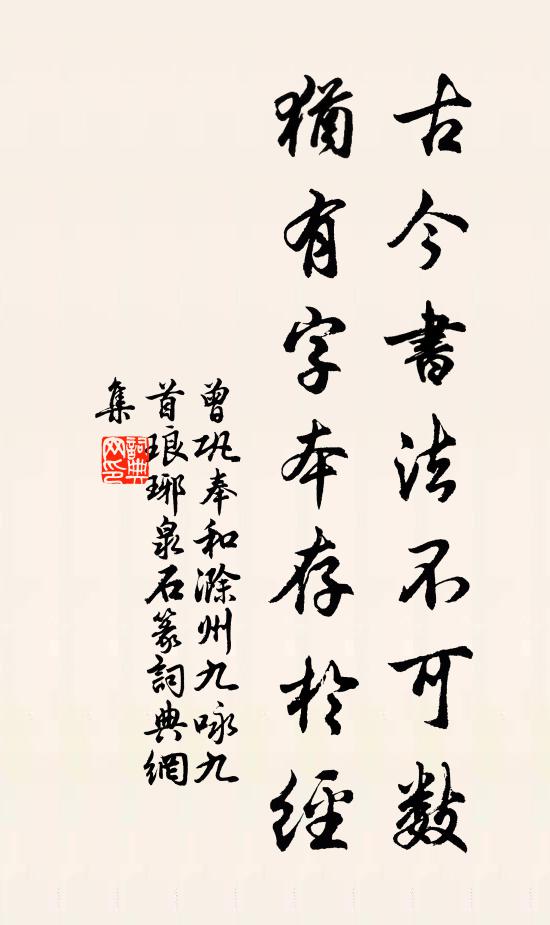 古今書法不可數
猶有字本存於經
曾巩奉和滁州九咏九
首琅琊泉石篆詞典網
集
詞典網印